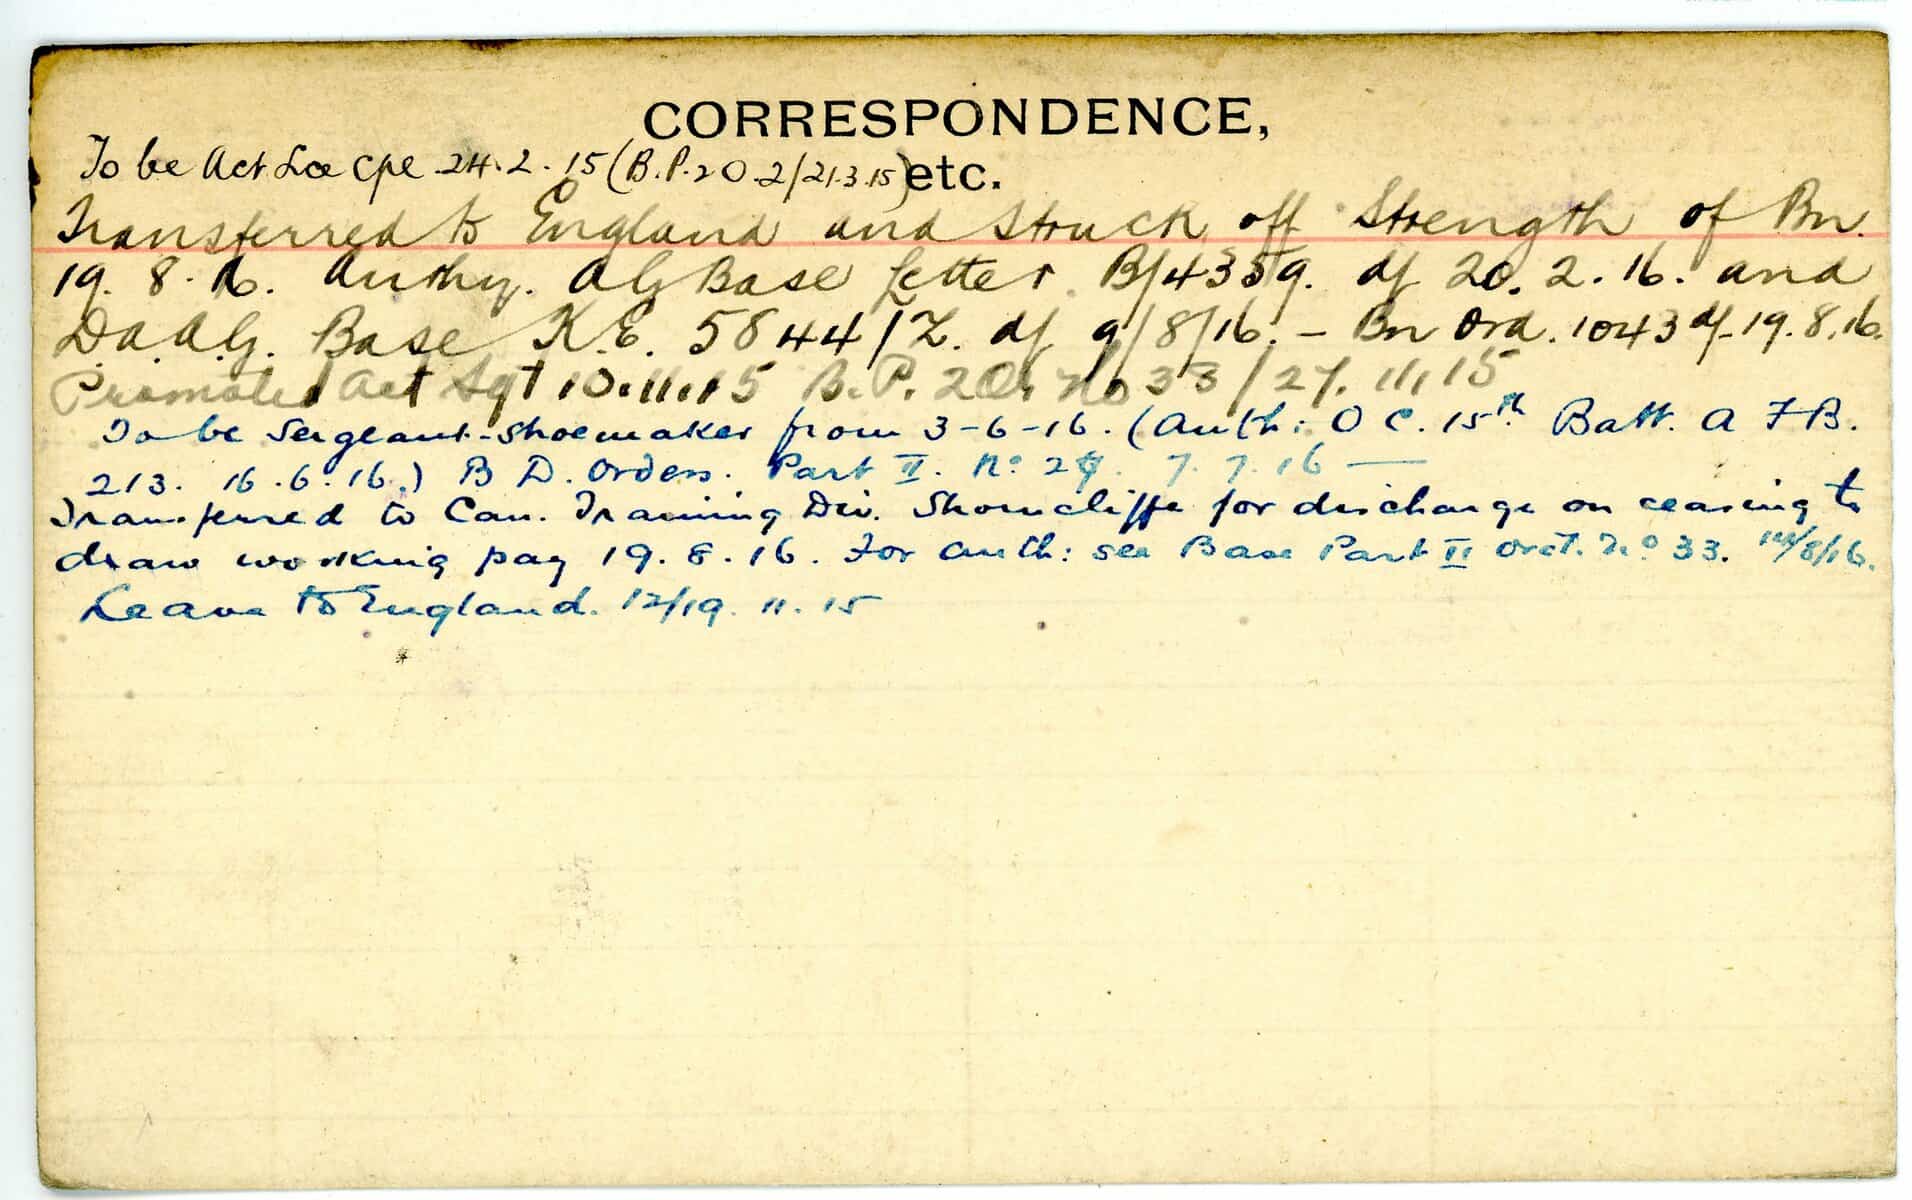 CORRESPONDENCE,
To be Act Lce Cpl. 24.2.15 (B.P.2 O.2/21.3.15) etc.
Transferred to England and Struck off Strength of Bn.
19.8.16. Authy. AG Base letter B/4359. df 20.2.16. and
D.A.A.G. Base K.E. 5844/Z. df 9/8/16. – Bn Ord. 1043 df 19.8.16.
Promoted Act Sgt 10.11.15 B.P. 2 O. No 33/27.11.15
To be Sergeant-Shoemaker from 3-6-16. (Auth: O C. 15th Batt. A F B.
213. 16.6.16.) B D. Orders. Part II. No 7.7.16 —
Transferred to Can. Training Div. Shorncliffe for discharge on ceasing to
draw working pay 19.8.16. For auth: see Base Part II Ord. No 33. /8/16.
Leave to England. 12/19.11.15